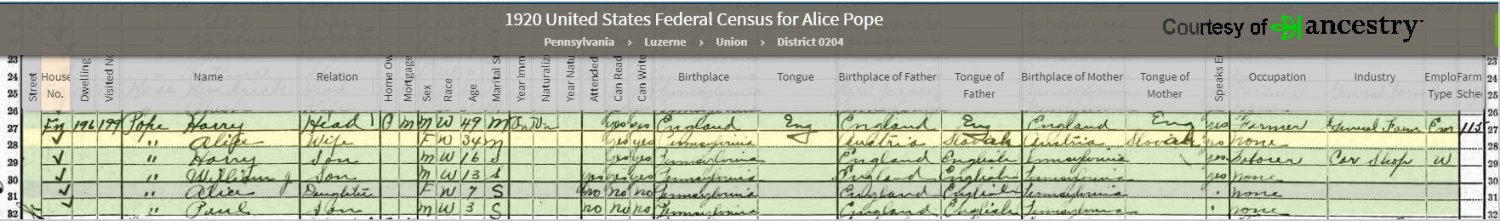 1920 United States Federal Census for Alice Pope
Courtesy of ancestry
Pennsylvania › Luzerne › Union › District 0204
Street House No. Dwelling Visited No Name Relation Home Ow Mortgage Sex Race Age Marital S Year Imm Naturaliz Year Natu Attended Can Read Can Write Birthplace Tongue Birthplace of Father Tongue of Father Birthplace of Mother Tongue of Mother Speaks E Occupation Industry Emplo Type Farm Sche
23
24 24
25 25
26 26
27 Fm 196 199 Pope Harry Head 1 O M M W 49 M Un Un yes yes England Eng England Eng England Eng yes Farmer General Farm Em 115 27
28 " Alice Wife F W 34 M yes yes Pennsylvania Austria Slovak Austria Slovak yes None 28
29 " Harry Son M W 16 S yes yes Pennsylvania England English Pennsylvania yes Laborer Car Shop W 29
30 " William J Son M W 13 S yes yes yes Pennsylvania England English Pennsylvania yes None 30
31 " Alice Daughter F W 7 S no no no Pennsylvania England English Pennsylvania None 31
32 " Paul Son M W 3 S no no no Pennsylvania England English Pennsylvania none 32